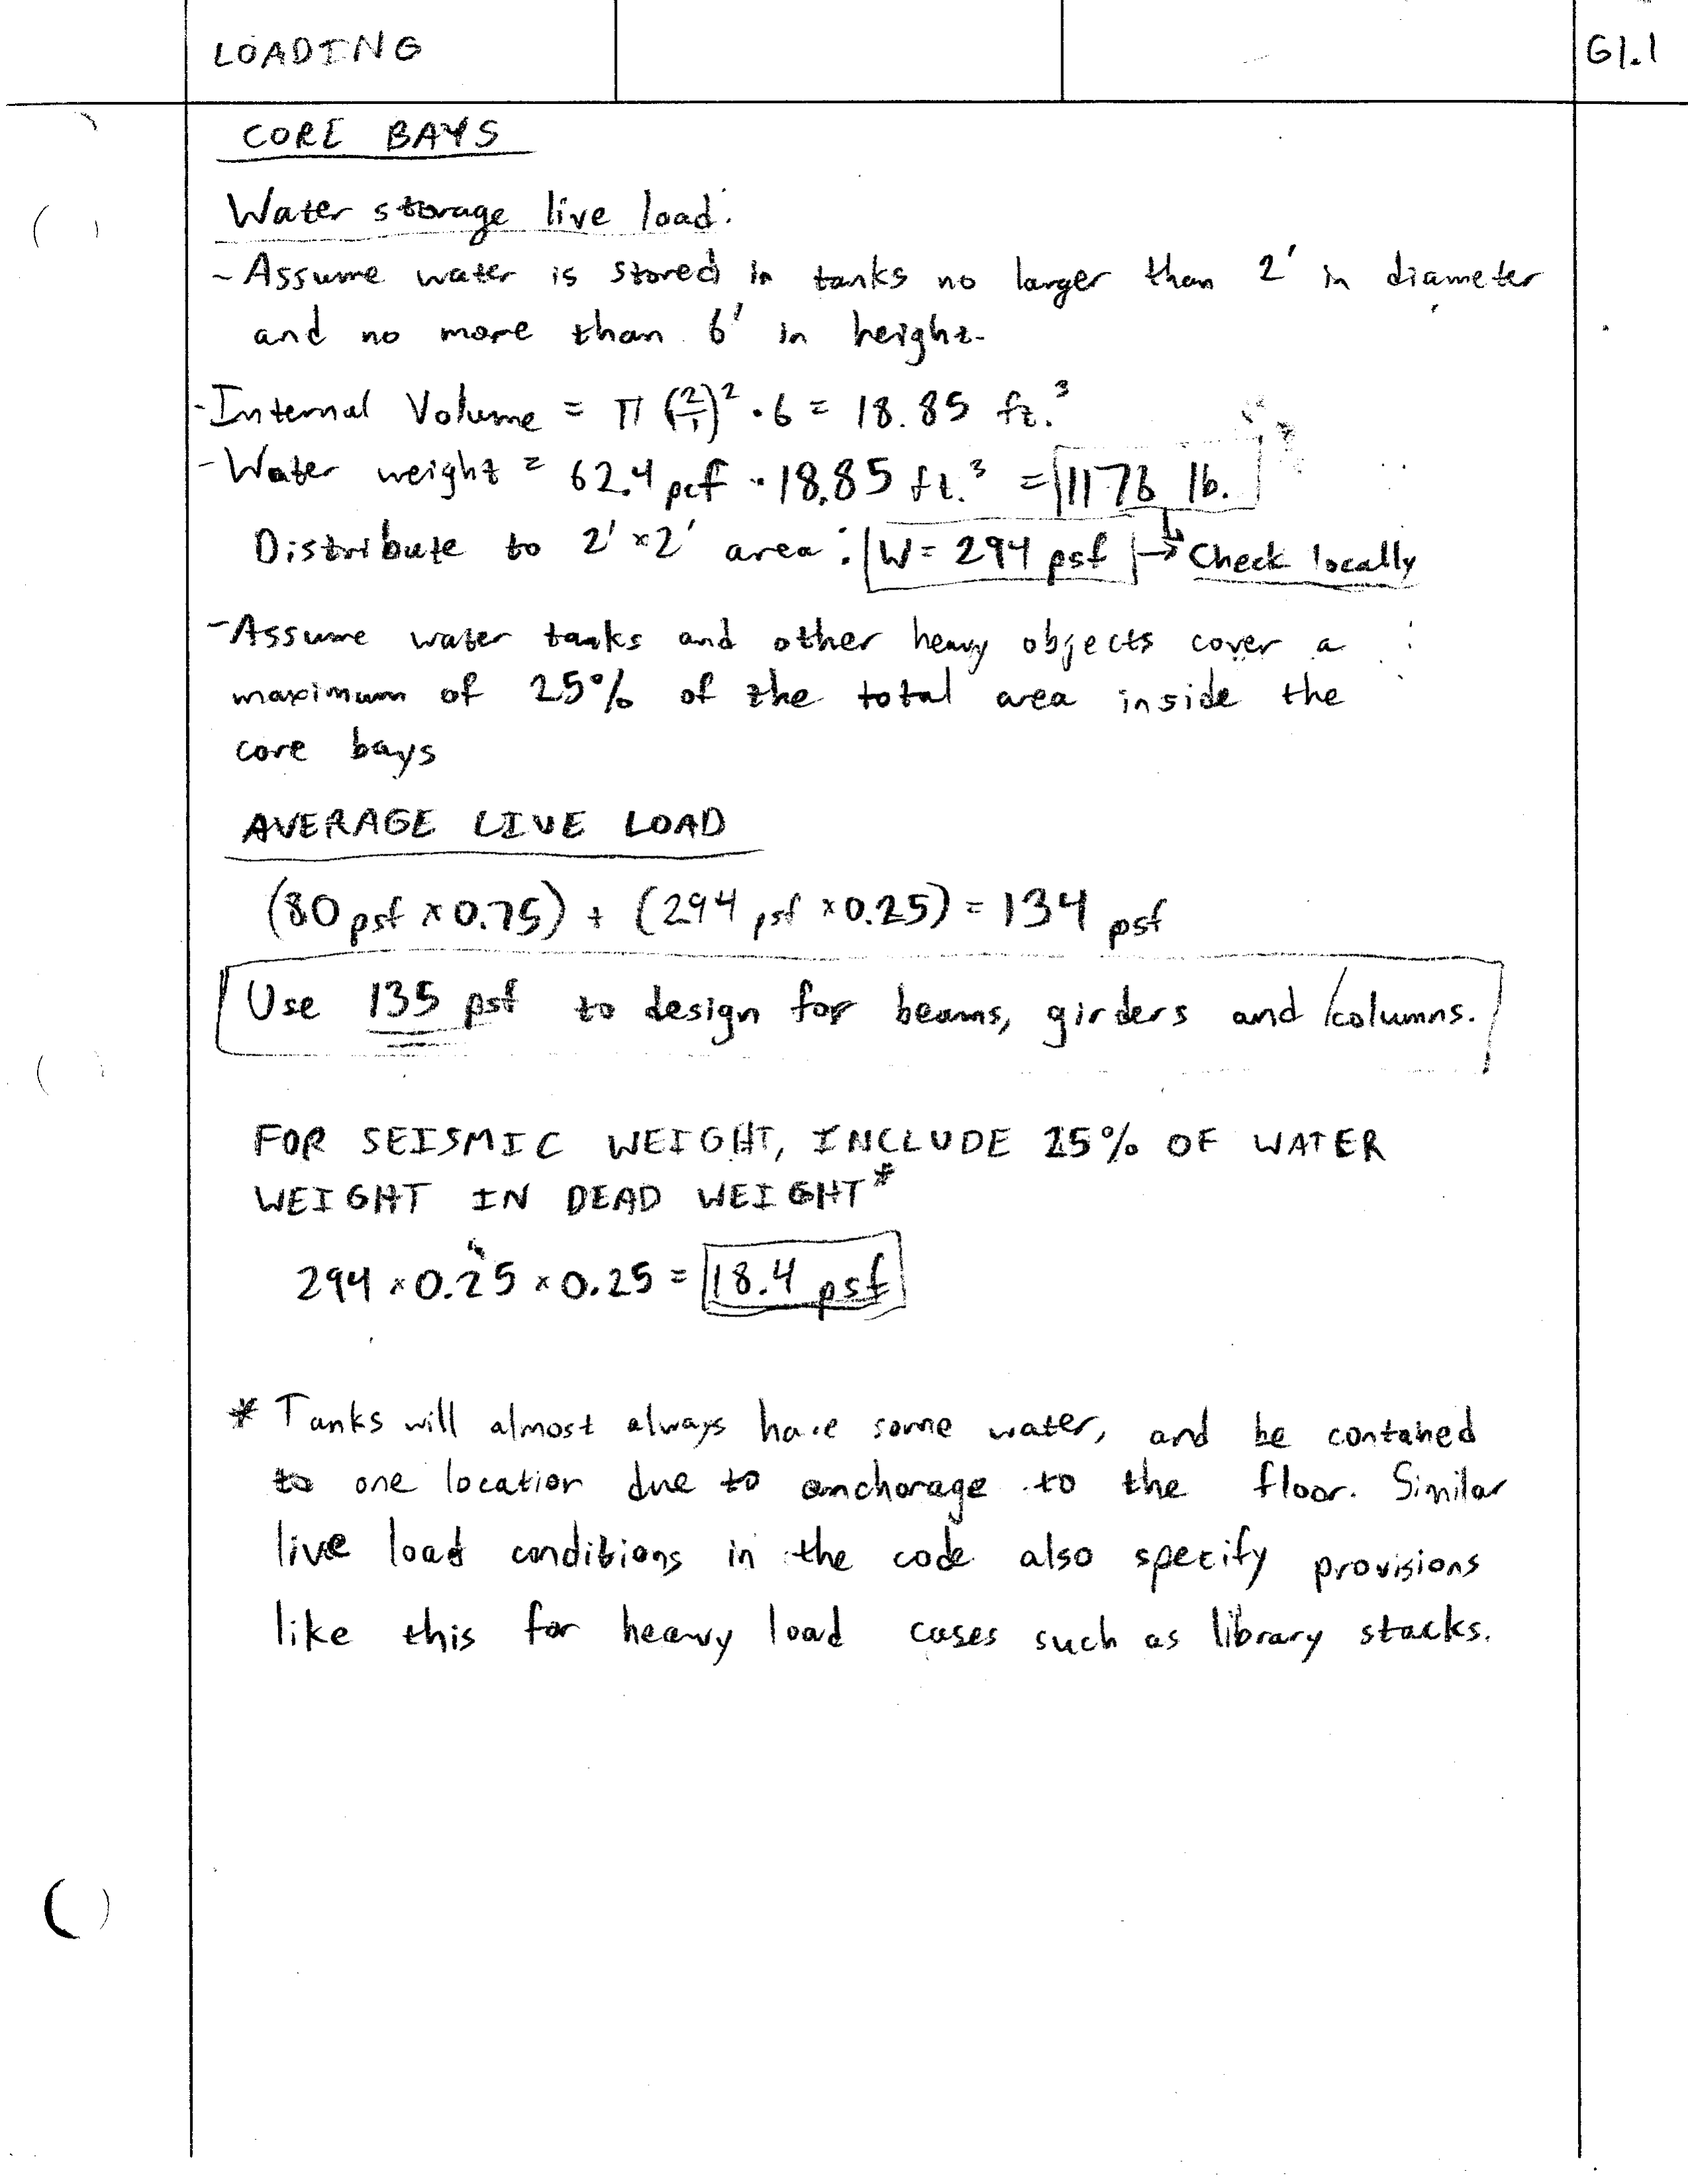 LOADING
G1.1
CORE BAYS
Water storage live load:
- Assume water is stored in tanks no larger than 2' in diameter
and no more than 6' in height.
- Internal Volume = π (2/1)² · 6 = 18.85 ft.³
- Water weight = 62.4 pcf · 18.85 ft.³ = 1176 lb.
Distribute to 2' × 2' area: W = 294 psf → Check locally
- Assume water tanks and other heavy objects cover a
maximum of 25% of the total area inside the
core bays
AVERAGE LIVE LOAD
(80 psf × 0.75) + (294 psf × 0.25) = 134 psf
Use 135 psf to design for beams, girders and columns.
FOR SEISMIC WEIGHT, INCLUDE 25% OF WATER
WEIGHT IN DEAD WEIGHT*
294 × 0.25 × 0.25 = 18.4 psf
* Tanks will almost always have some water, and be contained
to one location due to anchorage to the floor. Similar
live load conditions in the code also specify provisions
like this for heavy load cases such as library stacks.